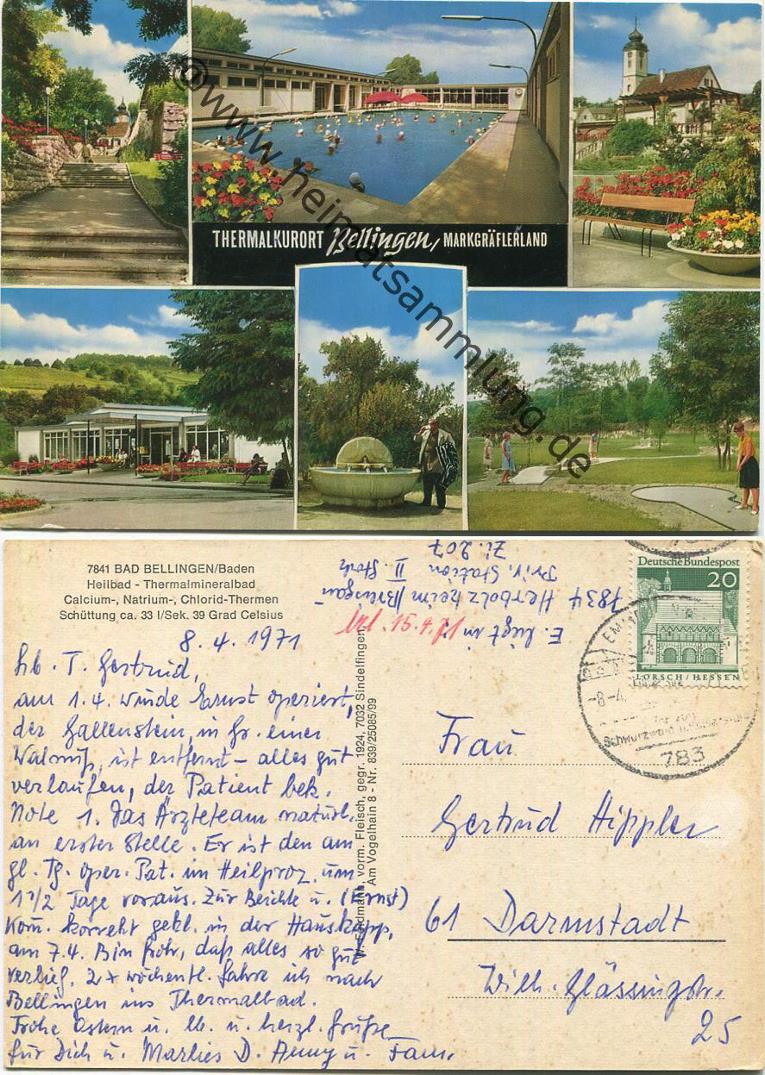 THERMALKURORT Bellingen, MARKGRÄFLERLAND
© www.heimatsammlung.de
7841 BAD BELLINGEN/Baden
Heilbad - Thermalmineralbad
Calcium-, Natrium-, Chlorid-Thermen
Schüttung ca. 33 l/Sek. 39 Grad Celsius
8.4.1971
lb. T. Gertrud,
am 1.4. wurde Ernst operiert,
der Gallenstein, in Gr. einer
Walnuß, ist entfernt – alles gut
verlaufen, der Patient bek.
Note 1. Das Ärzteteam natürl.
an erster Stelle. Er ist den am
gl. Tg. oper. Pat. im Heilproz. um
1 1/2 Tage voraus. Zur Beichte u. (Ernst)
Kom. korrekt gekl. in der Hauskapp.
am 7.4. Bin froh, daß alles so gut
verlief. 2x wöchentl. fahre ich nach
Bellingen ins Thermalbad.
Frohe Ostern u. lb. u. herzl. Grüße
für Dich u. Marlies D. Anny u. Fam.
E. liegt in
7834 Herbolzheim/Breisgau
Priv. Station II. Stock
Zi. 207
15.4.71
vorm. Fleisch, gegr. 1924, 7032 Sindelfingen
Am Vogelhain 8 - Nr. 839/25085/99
Deutsche Bundespost
20
LORSCH/HESSEN
-8-4.
Schwarzwald
783
Frau
Gertrud Hippler
61 Darmstadt
Wilh. Glässingstr.
25